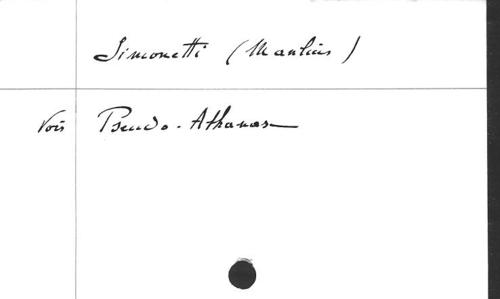 Simonetti (Manlius)
Voir Pseudo-Athanase